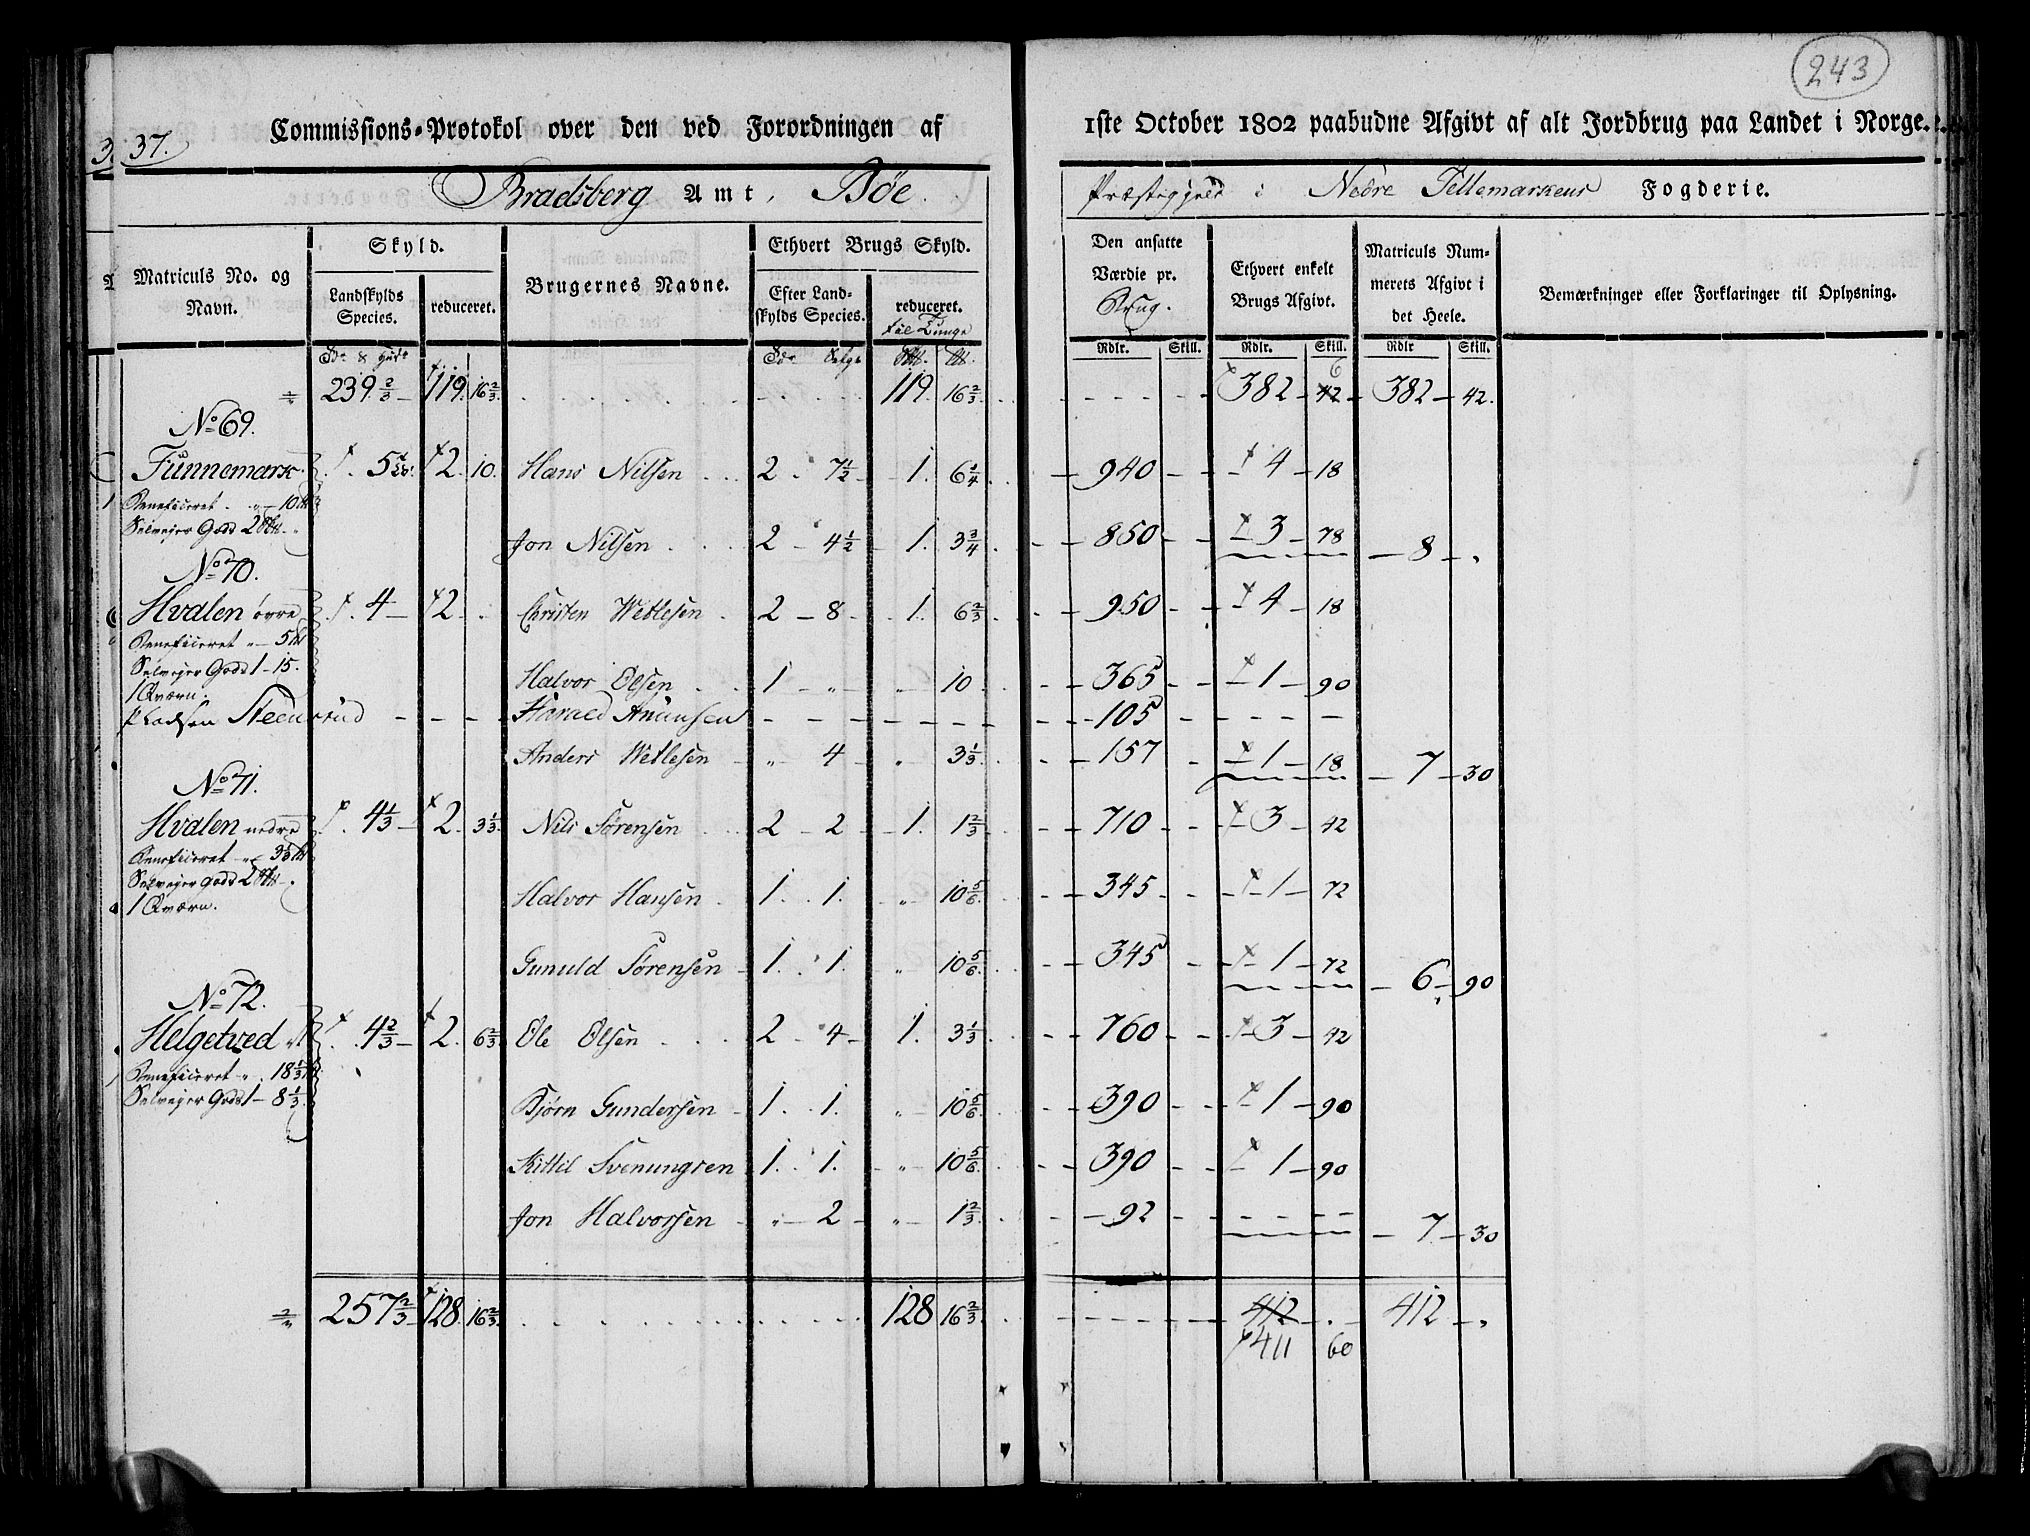 243
37.
Commissions-Protokol over den ved Forordningen af 1ste October 1802 paabudne Afgivt af alt Jordbrug paa Landet i Norge.
Bradsberg Amt, Bøe Præstegjeld i Nedre Tellemarkens Fogderie.
Matriculs No. og Navn.
Skyld.
Landskylds Species.
reduceret.
Brugernes Navne.
Ethvert Brugs Skyld.
Efter Landskylds Species.
reduceret.
til Tunge
Den ansatte Værdie pr. Brug.
Ethvert enkelt Brugs Afgivt.
Matriculs Nummerets Afgivt i det Heele.
Bemærkninger eller Forklaringer til Oplysning.
Rdlr. Skill. Rdlr. Skill. Rdlr Skill.
239 2/3 119. 16 2/3 119. 16 2/3 382 42 6 382 42.
No 69.
Funnemark 5 2. 10. Hans Nilsen 2 7 1/2 1. 6 1/4 940 4 18
Beneficeret 10
Selvejer Gods 2 Jon Nilsen 2 4 1/2 1. 3 3/4 850 3 78 8
No 70.
Hvalen øvre 4 2 Christen Wetlesen 2 8 1. 6 2/3 950 4 18
Beneficeret 5
Selvejer Gods 1-15. Halvor Olsen 1 " 10 365 1 90
1 Qværn.
Pladsen Steensrud Harald Amunsen 105
Anders Wetlesen " 4 " 3 1/3 157 1 18 7 30
No 71.
Hvalen nedre 4 1/3 2. 3 1/3 Nils Sørensen 2 2 1. 1 2/3 710 3 42
Beneficeret
Selvejer Gods 2
1 Qværn. Halvor Hansen 1. 1. " 10 5/6 345 1 72
Gunuld Sørensen 1. 1. " 10 5/6 345 1 72 6 90
No 72.
Helgetved 4 2/3 2. 6 2/3 Ole Olsen 2 4 1. 3 1/3 760 3 42
Beneficeret 18 1/3
Selvejer Gods 1-8 1/3. Bjørn Gundersen 1. 1. " 10 5/6 390 1 90
Kittil Svenungsen 1. 1. " 10 5/6 390 1 90
Jon Halvorsen " 2 " 1 2/3 92 7 30
257 2/3 128. 16 2/3 128 16 2/3 412 412
411 60